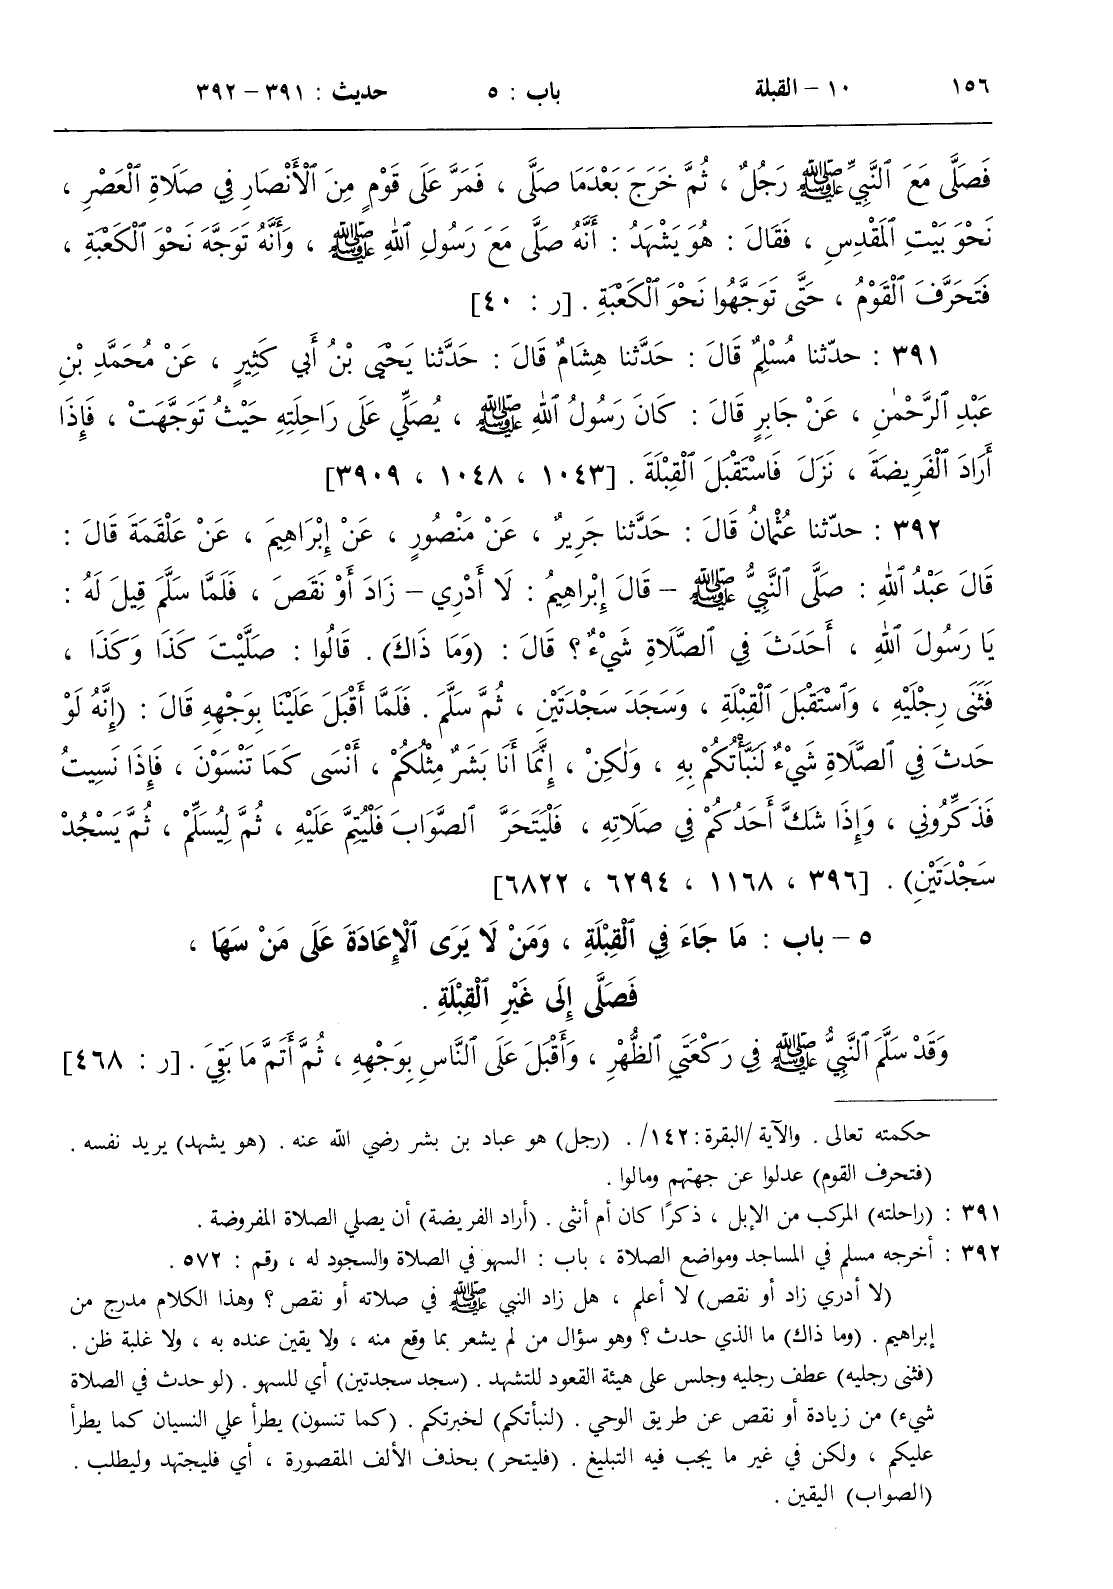 ١٥٦ ١٠ – القبلة باب : ٥ حديث : ٣٩١ – ٣٩٢
فَصَلَّى مَعَ ٱلنَّبِيِّ ﷺ رَجُلٌ ، ثُمَّ خَرَجَ بَعْدَمَا صَلَّى ، فَمَرَّ عَلَى قَوْمٍ مِنَ ٱلْأَنْصَارِ فِي صَلَاةِ ٱلْعَصْرِ ،
نَحْوَ بَيْتِ ٱلمَقْدِسِ ، فَقَالَ : هُوَ يَشْهَدُ : أَنَّهُ صَلَّى مَعَ رَسُولِ ٱللهِ ﷺ ، وَأَنَّهُ تَوَجَّهَ نَحْوَ ٱلْكَعْبَةِ ،
فَتَحَرَّفَ ٱلْقَوْمُ ، حَتَّى تَوَجَّهُوا نَحْوَ ٱلْكَعْبَةِ . [ر : ٤٠]
٣٩١ : حدّثنا مُسْلِمٌ قَالَ : حَدَّثَنا هِشَامٌ قَالَ : حَدَّثَنا يَحْيَى بْنُ أَبِي كَثِيرٍ ، عَنْ مُحَمَّدِ بْنِ
عَبْدِ ٱلرَّحْمٰنِ ، عَنْ جَابِرٍ قَالَ : كَانَ رَسُولُ ٱللهِ ﷺ ، يُصَلِّي عَلَى رَاحِلَتِهِ حَيْثُ تَوَجَّهَتْ ، فَإِذَا
أَرَادَ ٱلْفَرِيضَةَ ، نَزَلَ فَاسْتَقْبَلَ ٱلْقِبْلَةَ . [١٠٤٣ ، ١٠٤٨ ، ٣٩٠٩]
٣٩٢ : حدّثنا عُثْمانُ قَالَ : حَدَّثَنا جَرِيرٌ ، عَنْ مَنْصُورٍ ، عَنْ إِبْرَاهِيمَ ، عَنْ عَلْقَمَةَ قَالَ :
قَالَ عَبْدُ ٱللهِ : صَلَّى ٱلنَّبِيُّ ﷺ – قَالَ إِبْراهِيمُ : لَا أَدْرِي – زَادَ أَوْ نَقَصَ ، فَلَمَّا سَلَّمَ قِيلَ لَهُ :
يَا رَسُولَ ٱللهِ ، أَحَدَثَ فِي ٱلصَّلَاةِ شَيْءٌ ؟ قَالَ : (وَمَا ذَاكَ) . قَالُوا : صَلَّيْتَ كَذَا وَكَذَا ،
فَثَنَى رِجْلَيْهِ ، وَٱسْتَقْبَلَ ٱلْقِبْلَةِ ، وَسَجَدَ سَجْدَتَيْنِ ، ثُمَّ سَلَّمَ . فَلَمَّا أَقْبَلَ عَلَيْنَا بِوَجْهِهِ قَالَ : (إِنَّهُ لَوْ
حَدثَ فِي ٱلصَّلَاةِ شَيْءٌ لَنَبَّأْتُكُمْ بِهِ ، وَلٰكِنْ ، إِنَّمَا أَنَا بَشَرٌ مِثْلُكُمْ ، أَنْسَى كَمَا تَنْسَوْنَ ، فَإِذَا نَسِيتُ
فَذَكِّرُونِي ، وَإِذَا شَكَّ أَحَدُكُمْ فِي صَلَاتِهِ ، فَلْيَتَحَرَّ ٱلصَّوَابَ فَلْيُتِمَّ عَلَيْهِ ، ثُمَّ لِيُسَلِّمْ ، ثُمَّ يَسْجُدْ
سَجْدَتَيْنِ) . [٣٩٦ ، ١١٦٨ ، ٦٢٩٤ ، ٦٨٢٢]
٥ – باب : مَا جَاءَ فِي ٱلْقِبْلَةِ ، وَمَنْ لَا يَرَى ٱلْإِعَادَةَ عَلَى مَنْ سَهَا ،
فَصَلَّى إِلَى غَيْرِ ٱلْقِبْلَةِ .
وَقَدْ سَلَّمَ ٱلنَّبِيُّ ﷺ فِي رَكْعَتَيِ ٱلظُّهْرِ ، وَأَقْبَلَ عَلَى ٱلنَّاسِ بِوَجْهِهِ ، ثُمَّ أَتَمَّ مَا بَقِيَ . [ر : ٤٦٨]
حكمته تعالى . والآية /البقرة : ١٤٢/ . (رجل) هو عباد بن بشر رضي الله عنه . (هو يشهد) يريد نفسه .
(فتحرف القوم) عدلوا عن جهتهم ومالوا .
٣٩١ : (راحلته) المركب من الإبل ، ذكرًا كان أم أنثى . (أراد الفريضة) أن يصلي الصلاة المفروضة .
٣٩٢ : أخرجه مسلم في المساجد ومواضع الصلاة ، باب : السهو في الصلاة والسجود له ، رقم : ٥٧٢ .
(لا أدري زاد أو نقص) لا أعلم ، هل زاد النبي ﷺ في صلاته أو نقص ؟ وهذا الكلام مدرج من
إبراهيم . (وما ذاك) ما الذي حدث ؟ وهو سؤال من لم يشعر بما وقع منه ، ولا يقين عنده به ، ولا غلبة ظن .
(فثنى رجليه) عطف رجليه وجلس على هيئة القعود للتشهد . (سجد سجدتين) أي للسهو . (لو حدث في الصلاة
شيء) من زيادة أو نقص عن طريق الوحي . (لنبأتكم) لخبرتكم . (كما تنسون) يطرأ علي النسيان كما يطرأ
عليكم ، ولكن في غير ما يجب فيه التبليغ . (فليتحر) بحذف الألف المقصورة ، أي فليجتهد وليطلب .
(الصواب) اليقين .